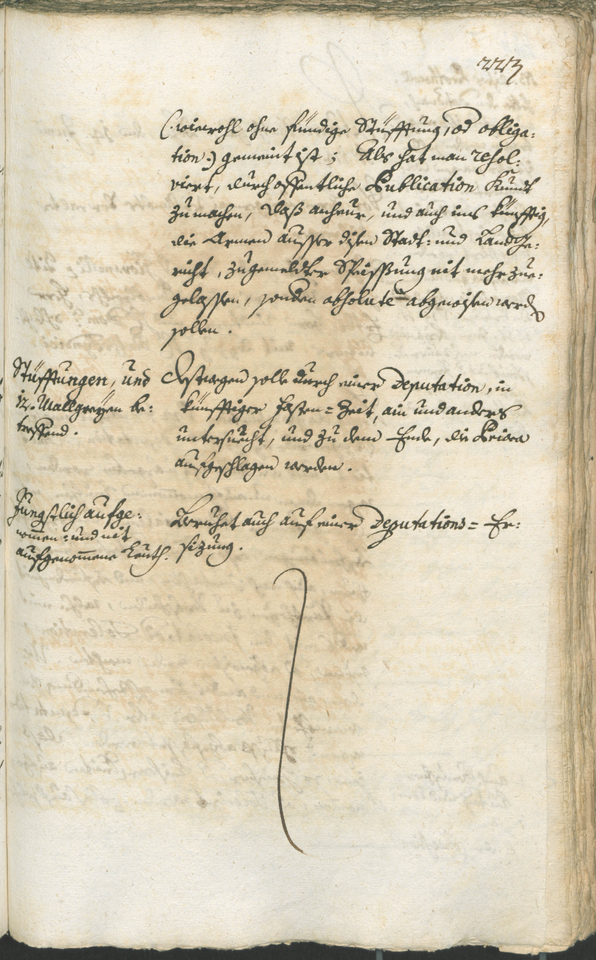 223
(: wiewohl ohne fündige Stüfftung, od obliga-
tion :) gemeint ist; Als hat man resol-
viert, durch offentliche Publication Kundt
zu machen, daß anheur, und auch ins künfftig,
die Armen ausser disen Stadt- und Landtge-
richt, zu gemeldter Speissung nit mehr zue-
gelassen, sonden absolutè abgewisen werden
sollen.
Stüfftungen, und
Wallgreyen be-
treffend.
Destwegen solle durch einer Deputation, in
künfftiger Fasten-Zeit, ain und anders
untersuecht, und zu dem Ende, die Priora
aufgeschlagen werden.
Jüngstlich aufge-
nomen- und nit
aufgenommene Leuth.
Beruhet auch auf einer Deputations- Er-
sizung.